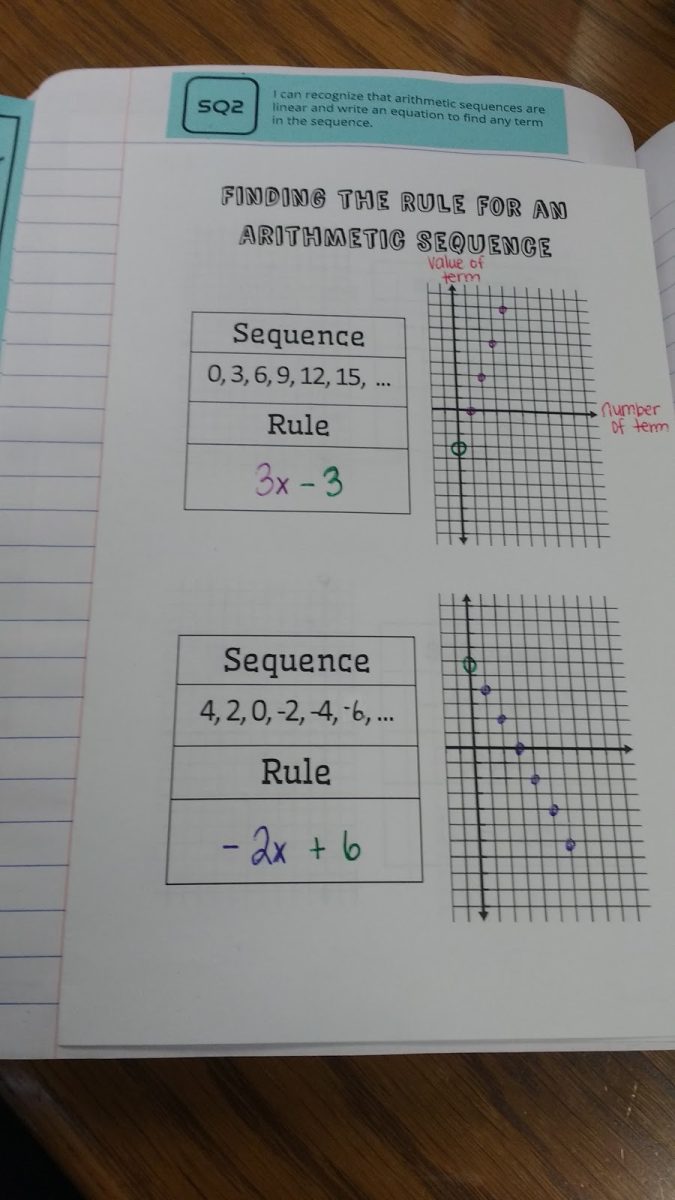 SQ2
I can recognize that arithmetic sequences are
linear and write an equation to find any term
in the sequence.
FINDING THE RULE FOR AN
ARITHMETIC SEQUENCE
value of
term
Sequence
0, 3, 6, 9, 12, 15, ...
Rule
3x - 3
number
of term
Sequence
4, 2, 0, -2, -4, -6, ...
Rule
- 2x + 6